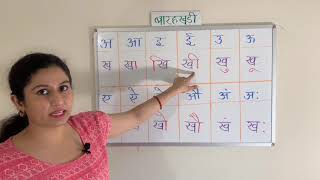 बारहखडी
अ आ इ ई उ ऊ
ख खा खि खी खु खू
ए ऐ औ अं अः
खो खौ खं खः